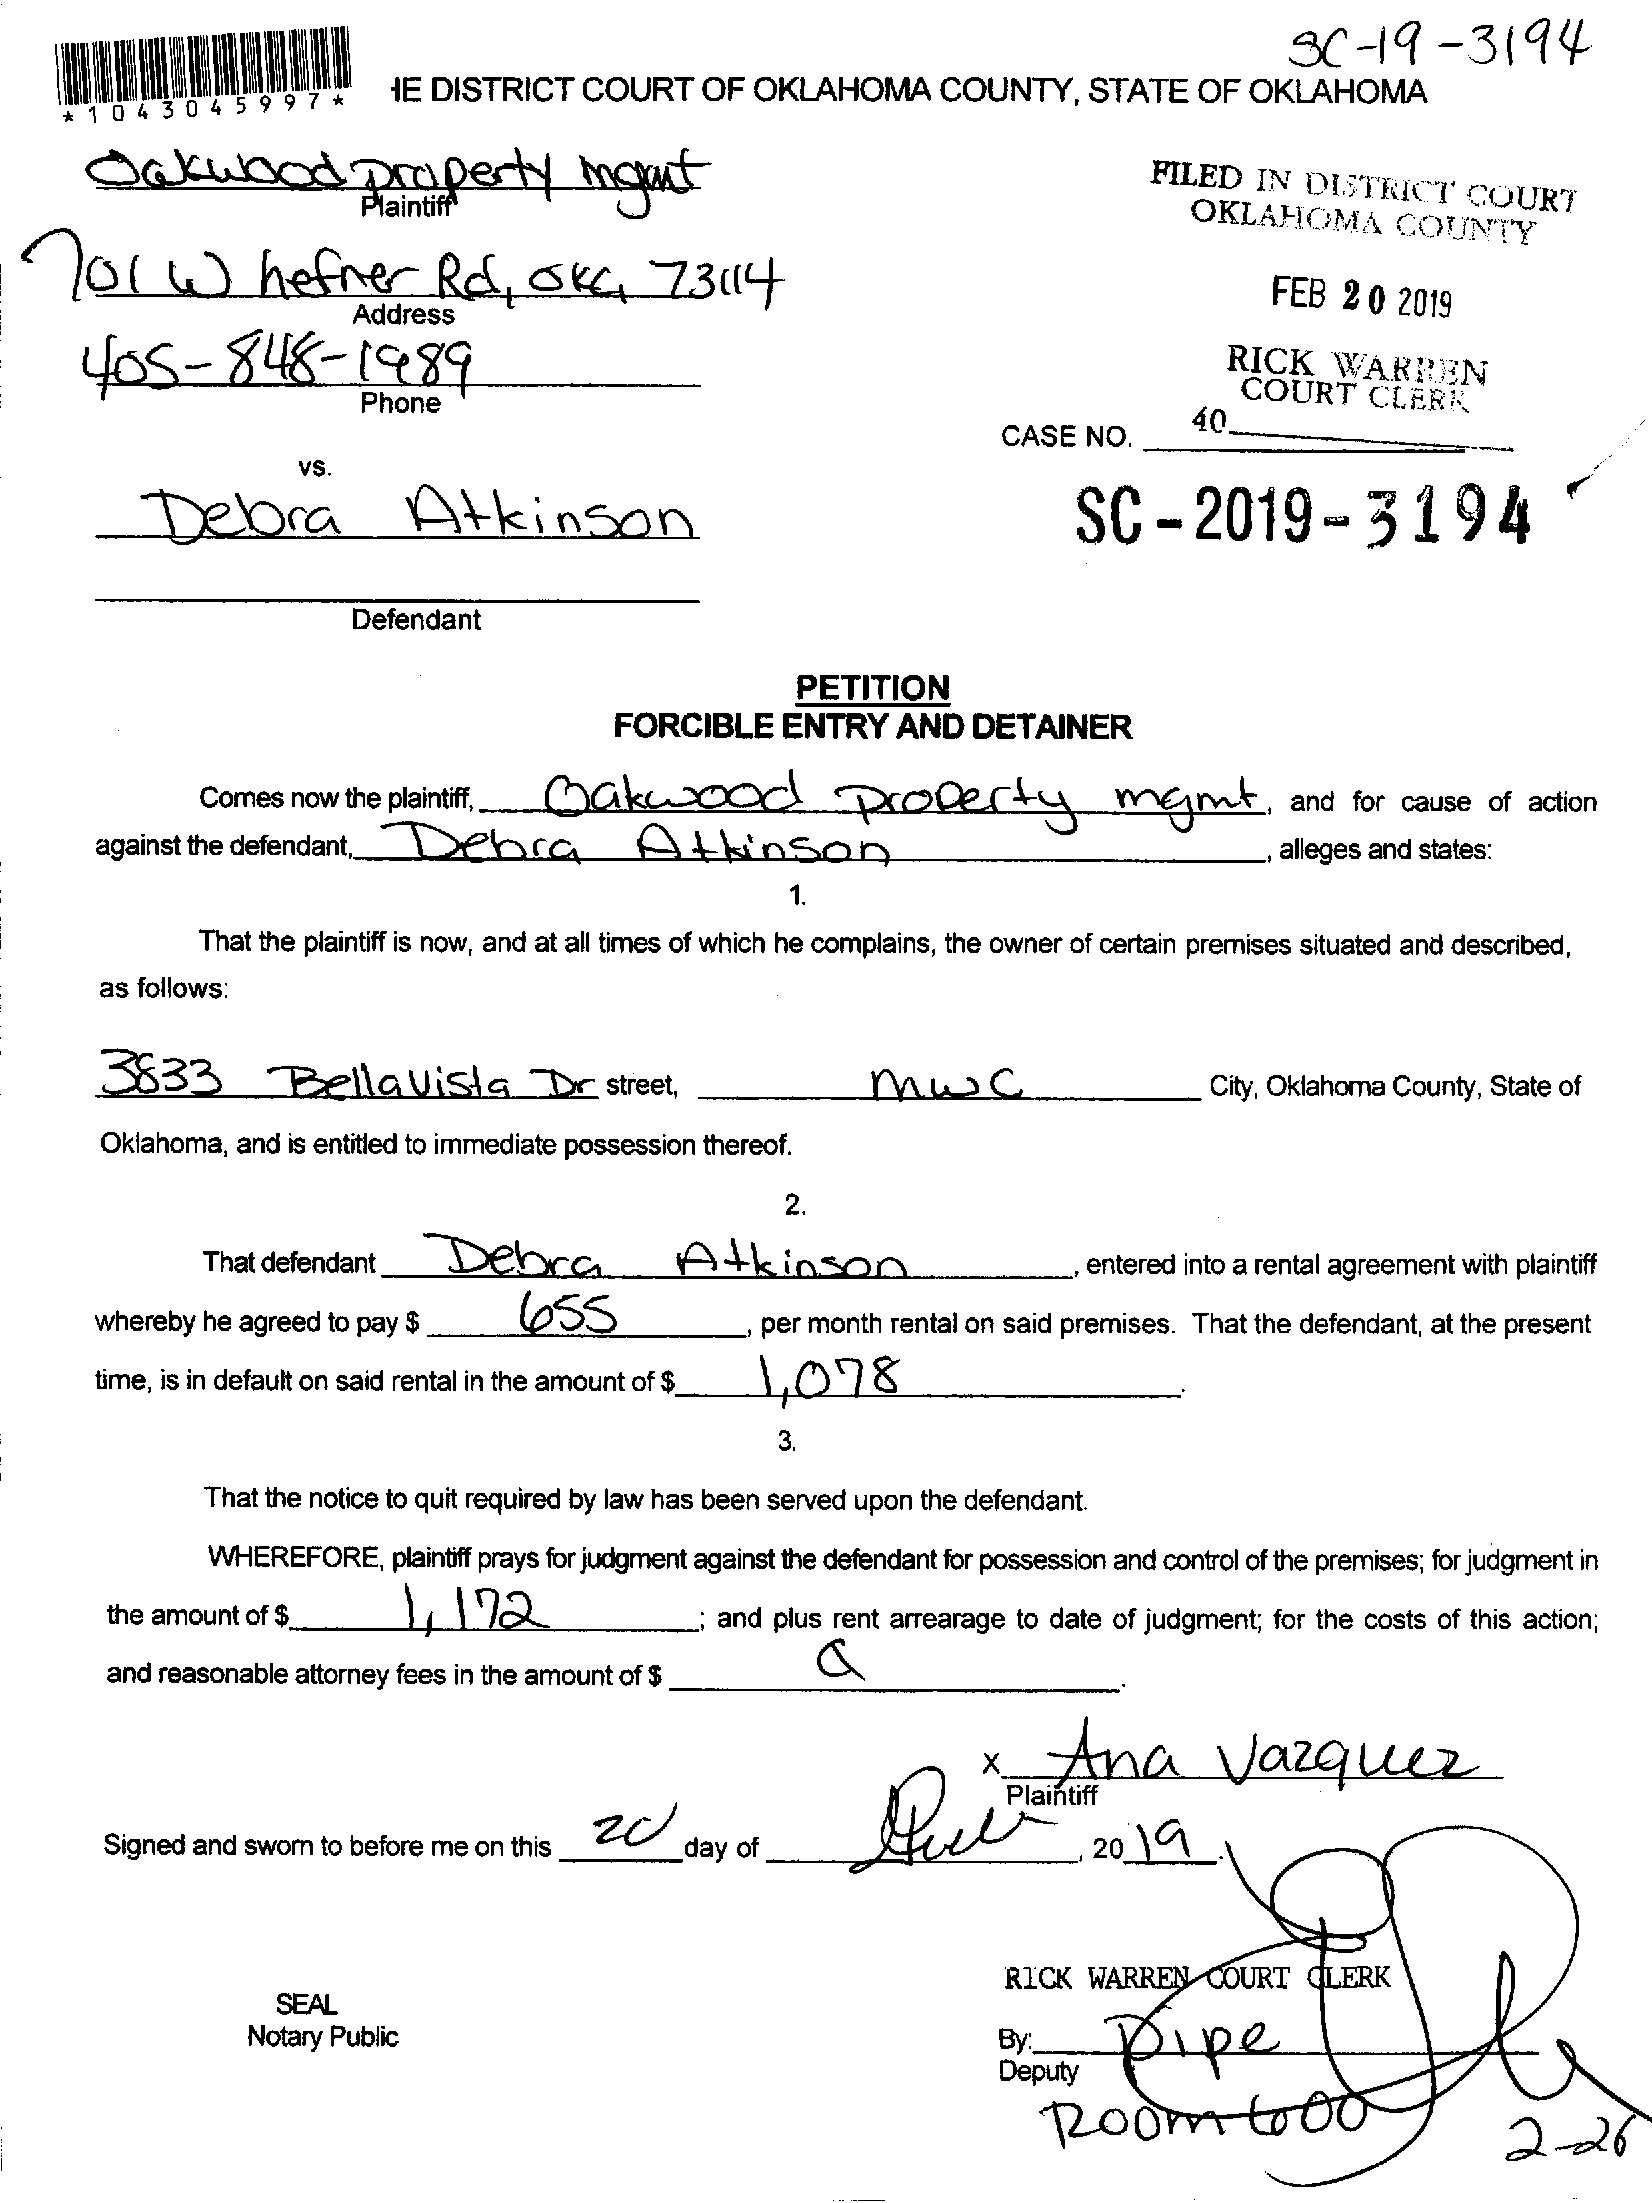 SC-19-3194
*1043045997*
HE DISTRICT COURT OF OKLAHOMA COUNTY, STATE OF OKLAHOMA
Oakwood property mgmt
Plaintiff
FILED IN DISTRICT COURT
OKLAHOMA COUNTY
701 W hefner Rd, OKC, 73114
Address
FEB 20 2019
405-848-1989
Phone
RICK WARREN
COURT CLERK
40
CASE NO.
vs.
Debra Atkinson
SC-2019-3194
Defendant
PETITION
FORCIBLE ENTRY AND DETAINER
Comes now the plaintiff, Oakwood property mgmt, and for cause of action
against the defendant, Debra Atkinson, alleges and states:
1.
That the plaintiff is now, and at all times of which he complains, the owner of certain premises situated and described,
as follows:
3833 Bella Vista Dr street, mwc City, Oklahoma County, State of
Oklahoma, and is entitled to immediate possession thereof.
2.
That defendant Debra Atkinson, entered into a rental agreement with plaintiff
whereby he agreed to pay $ 655, per month rental on said premises. That the defendant, at the present
time, is in default on said rental in the amount of $ 1,078.
3.
That the notice to quit required by law has been served upon the defendant.
WHEREFORE, plaintiff prays for judgment against the defendant for possession and control of the premises; for judgment in
the amount of $ 1,172; and plus rent arrearage to date of judgment; for the costs of this action;
and reasonable attorney fees in the amount of $ .
x Ana Vazquez
Plaintiff
Signed and sworn to before me on this 20 day of , 2019.
RICK WARREN COURT CLERK
SEAL
Notary Public
By: Pipe
Deputy
Room 600
2-26